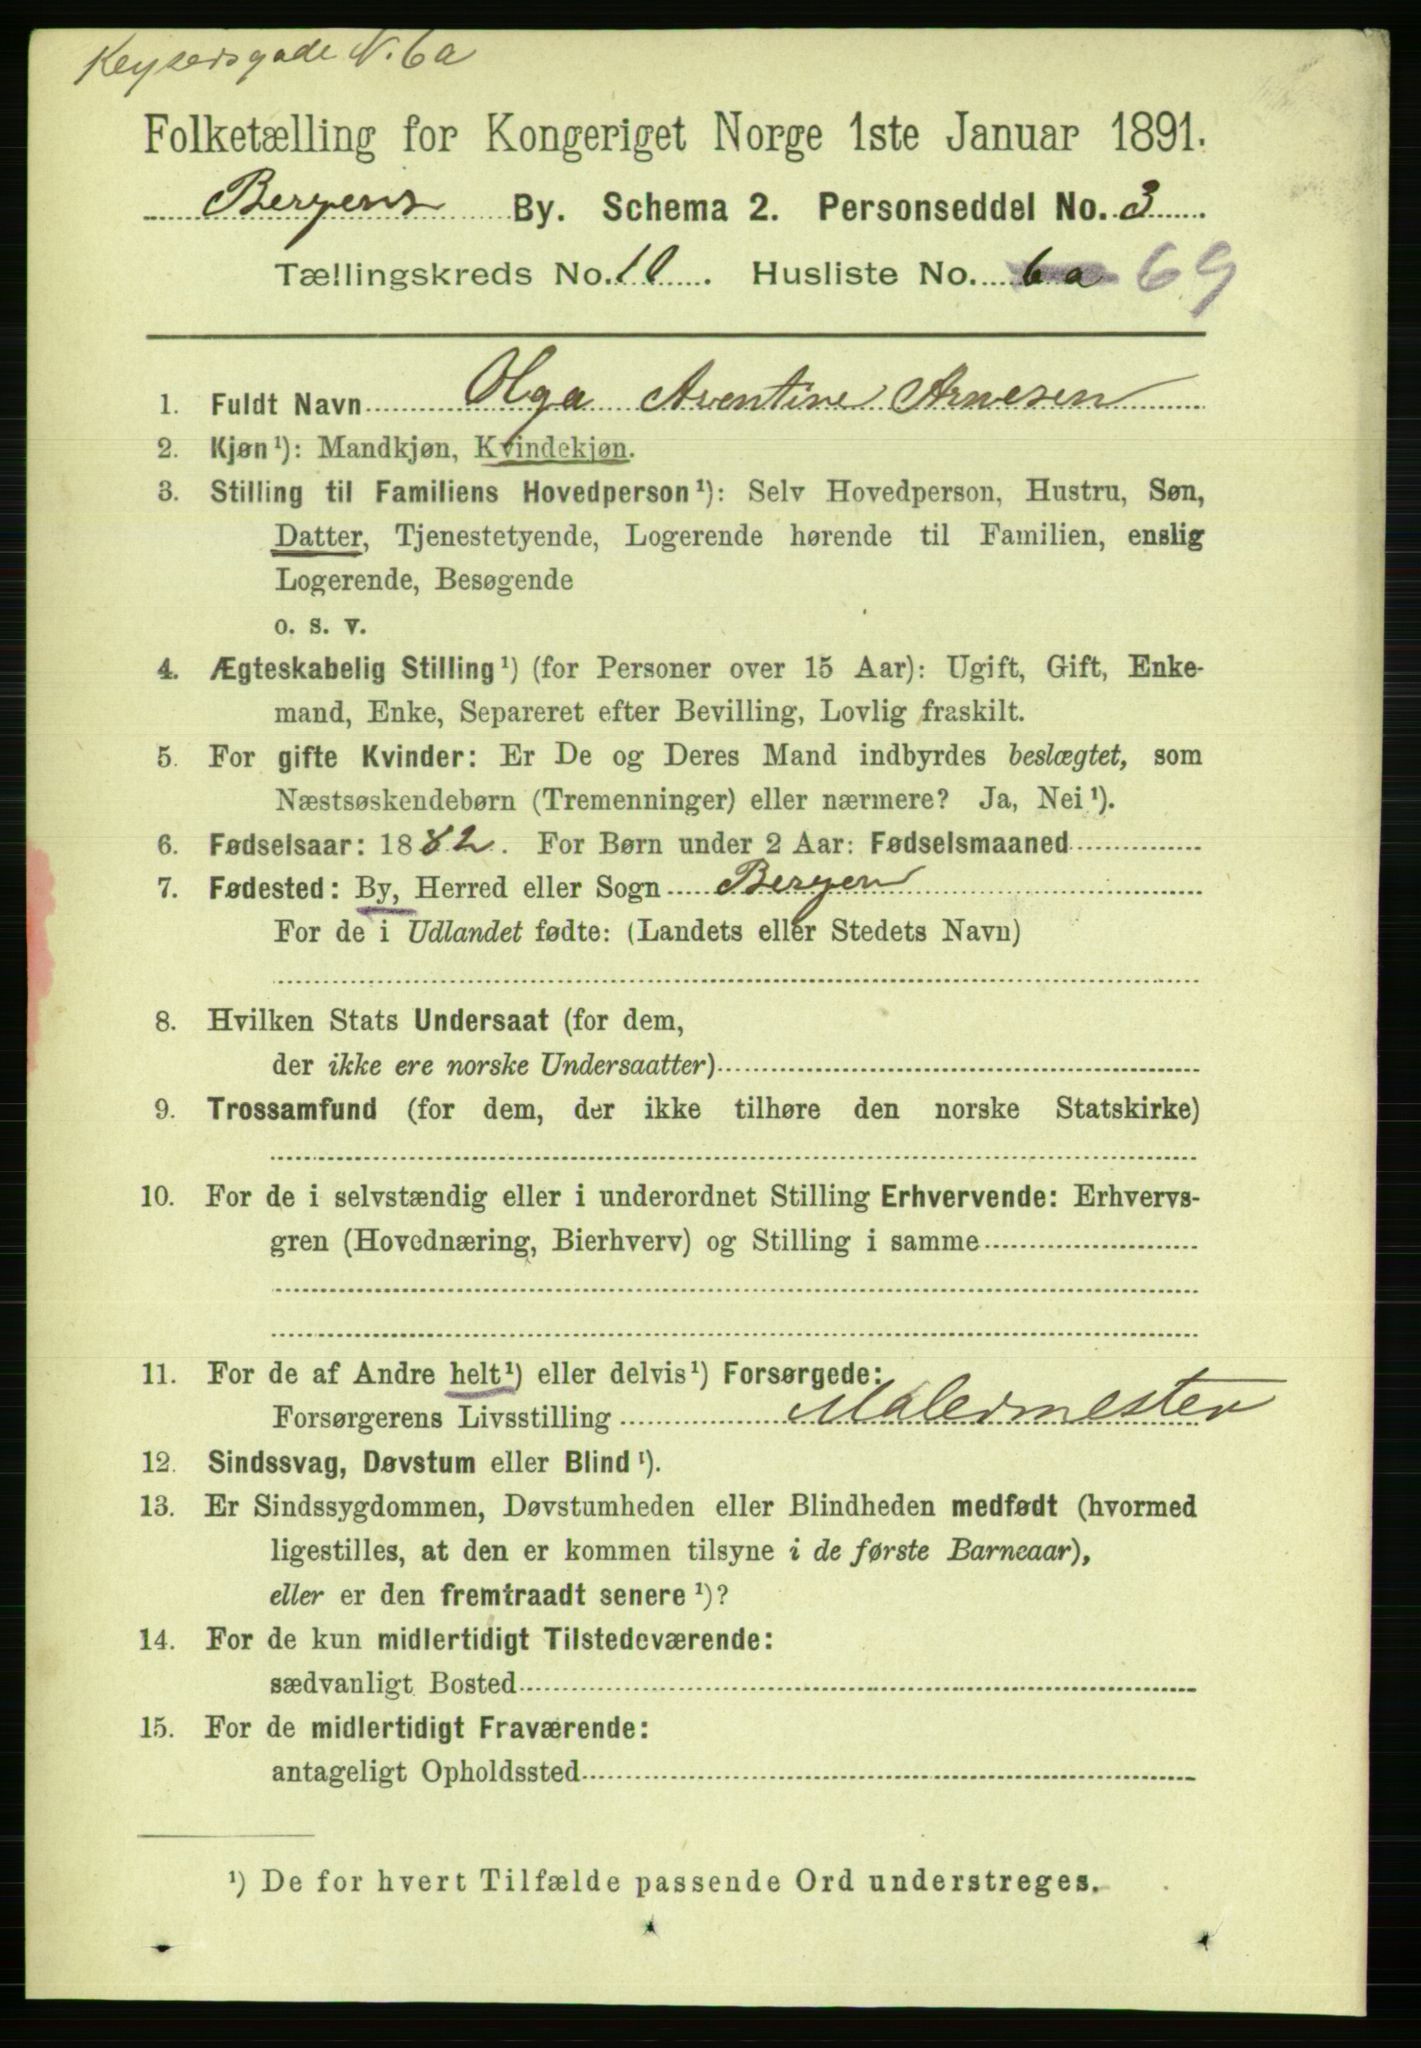 Keysersgade N. 6a
Folketælling for Kongeriget Norge 1ste Januar 1891.
Bergens By. Schema 2. Personseddel No. 3
Tællingskreds No. 10. Husliste No. 6a 69
1. Fuldt Navn Olga Aventine Arnesen
2. Kjøn¹): Mandkjøn, Kvindekjøn.
3. Stilling til Familiens Hovedperson¹): Selv Hovedperson, Hustru, Søn,
Datter, Tjenestetyende, Logerende hørende til Familien, enslig
Logerende, Besøgende
o. s. v.
4. Ægteskabelig Stilling¹) (for Personer over 15 Aar): Ugift, Gift, Enke-
mand, Enke, Separeret efter Bevilling, Lovlig fraskilt.
5. For gifte Kvinder: Er De og Deres Mand indbyrdes beslægtet, som
Næstsøskendebørn (Tremenninger) eller nærmere? Ja, Nei¹).
6. Fødselsaar: 1882. For Børn under 2 Aar: Fødselsmaaned
7. Fødested: By, Herred eller Sogn Bergen
For de i Udlandet fødte: (Landets eller Stedets Navn)
8. Hvilken Stats Undersaat (for dem,
der ikke ere norske Undersaatter)
9. Trossamfund (for dem, der ikke tilhøre den norske Statskirke)
10. For de i selvstændig eller i underordnet Stilling Erhvervende: Erhvervs-
gren (Hovednæring, Bierhverv) og Stilling i samme
11. For de af Andre helt¹) eller delvis¹) Forsørgede:
Forsørgerens Livsstilling Malermester
12. Sindssvag, Døvstum eller Blind¹).
13. Er Sindssygdommen, Døvstumheden eller Blindheden medfødt (hvormed
ligestilles, at den er kommen tilsyne i de første Barneaar),
eller er den fremtraadt senere¹)?
14. For de kun midlertidigt Tilstedeværende:
sædvanligt Bosted
15. For de midlertidigt Fraværende:
antageligt Opholdssted
¹) De for hvert Tilfælde passende Ord understreges.